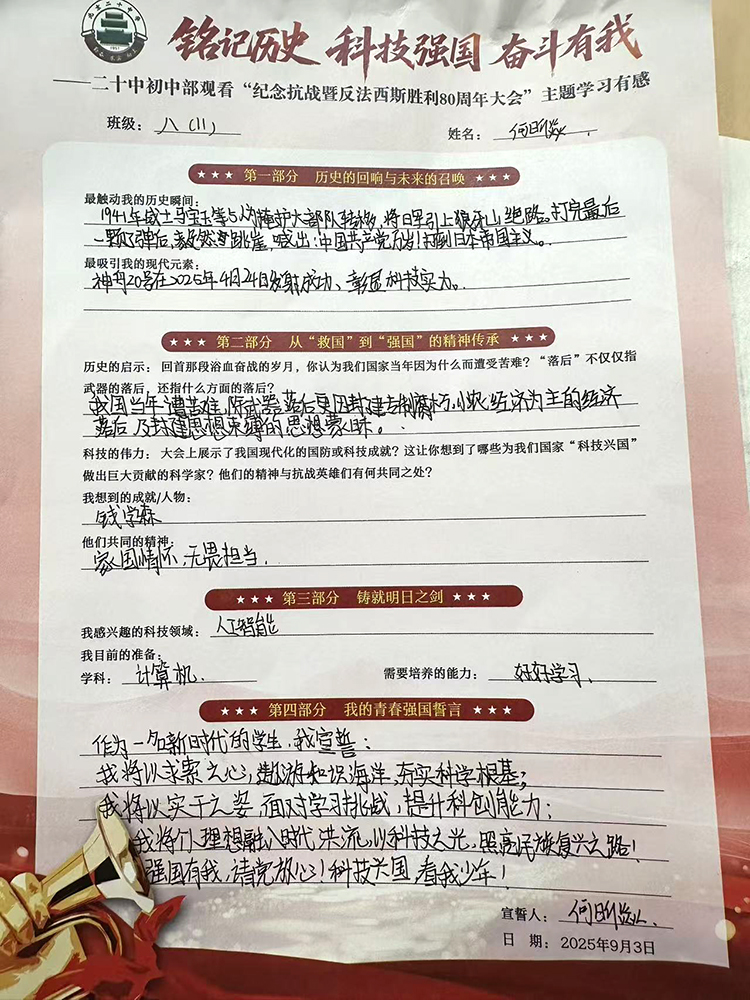 铭记历史 科技强国 奋斗有我
——二十中初中部观看“纪念抗战暨反法西斯胜利80周年大会”主题学习有感
班级: 八(11) 姓名: 何明
第一部分 历史的回响与未来的召唤
最触动我的历史瞬间:
1941年战士马宝玉等5人为掩护大部队转移,将日军引上狼牙山绝路。打完最后
一颗子弹后,毅然跳崖,喊出:中国共产党万岁!打倒日本帝国主义。
最吸引我的现代元素:
神舟20号在2025年4月24日发射成功、彰显科技实力。
第二部分 从“救国”到“强国”的精神传承
历史的启示: 回首那段浴血奋战的岁月,你认为我们国家当年因为什么而遭受苦难?“落后”不仅仅指
武器的落后,还指什么方面的落后?
我国当年遭苦难,除武器落后更因封建专制腐朽、小农经济为主的经济
落后 及封建思想束缚的思想蒙昧。
科技的伟力: 大会上展示了我国现代化的国防或科技成就?这让你想到了哪些为我们国家“科技兴国”
做出巨大贡献的科学家?他们的精神与抗战英雄们有何共同之处?
我想到的成就/人物:
钱学森
他们共同的精神:
家国情怀,无畏担当.
第三部分 铸就明日之剑
我感兴趣的科技领域: 人工智能
我目前的准备:
学科: 计算机. 需要培养的能力: 好好学习.
第四部分 我的青春强国誓言
作为一名新时代的学生,我宣誓:
我将以求索之心,遨游知识海洋,夯实科学根基;
我将以实干之姿,面对学习挑战,提升科创能力;
我将个人理想融入时代洪流,以科技之光,照亮民族复兴之路!
强国有我,请党放心!科技兴国,看我少年!
宣誓人: 何明
日 期: 2025年9月3日